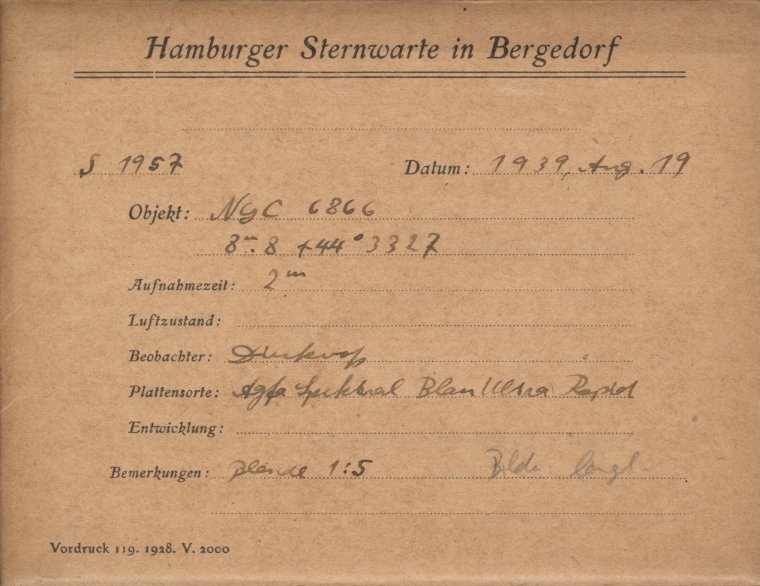 Hamburger Sternwarte in Bergedorf
S 1957 Datum: 1939, Aug. 19
Objekt: NGC 6866
8ᵐ.8 +44°3327
Aufnahmezeit: 2ᵐ
Luftzustand:
Beobachter: Dieckvoß
Plattensorte: Agfa Spektral Blau Ultra Rapid
Entwicklung:
Bemerkungen: Blende 1:5
Vordruck 119. 1928. V. 2000